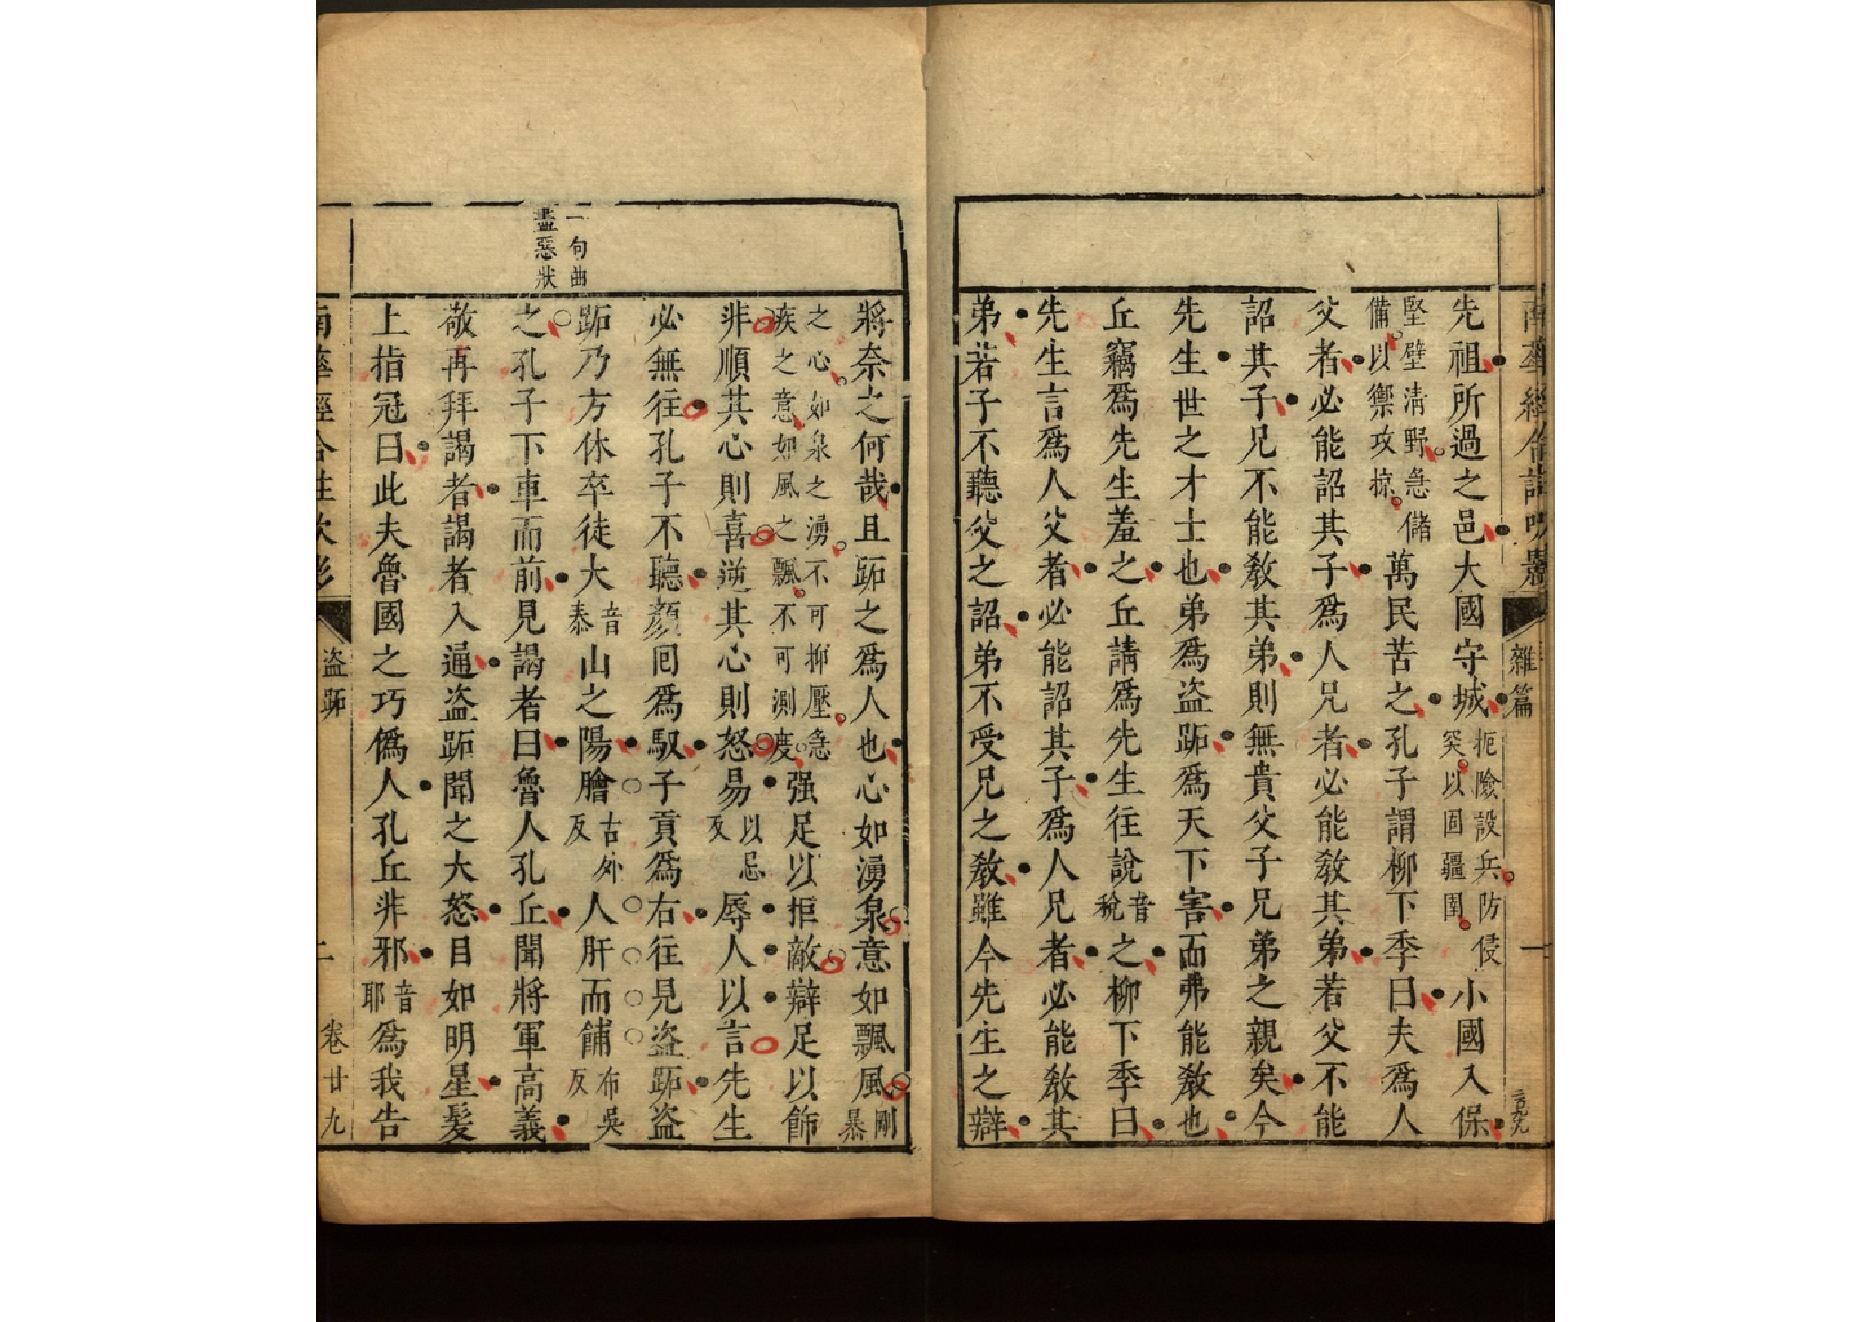 南華經合註吹影
雜篇
一
先祖所過之邑大國守城扼險設兵防侵突以固疆圉小國入保
堅壁清野急儲備以禦攻掠萬民苦之孔子謂柳下季曰夫爲人
父者必能詔其子爲人兄者必能敎其弟若父不能
詔其子兄不能敎其弟則無貴父子兄弟之親矣今
先生世之才士也弟爲盜跖爲天下害而弗能敎也
丘竊爲先生羞之丘請爲先生往說音稅之柳下季曰
先生言爲人父者必能詔其子爲人兄者必能敎其
弟若子不聽父之詔弟不受兄之敎雖今先生之辯
將奈之何哉且跖之爲人也心如湧泉意如飄風剛暴
之心如泉之湧不可抑壓急疾之意如風之飄不可測度强足以拒敵辯足以飾
非順其心則喜逆其心則怒易以忌反辱人以言先生
必無往孔子不聽顏囘爲馭子貢爲右往見盜跖盜
跖乃方休卒徒大音泰山之陽膾古外反人肝而餔布吳反
之孔子下車而前見謁者曰魯人孔丘聞將軍高義
敬再拜謁者謁者入通盜跖聞之大怒目如明星髮
上指冠曰此夫魯國之巧僞人孔丘非邪音耶爲我告
一句曲
盡惡狀
南華經合註吹影
盜跖
二
卷廿九